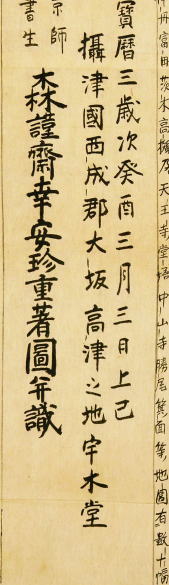 丹富田茨木高槻及天王寺堂嶋中山寺勝尾箕面等地圖有數十幅
寶暦三歳次癸酉三月三日上巳
攝津國西成郡大坂高津之地宇木堂
京師
書生
森謹齋幸安珍重著圖并識